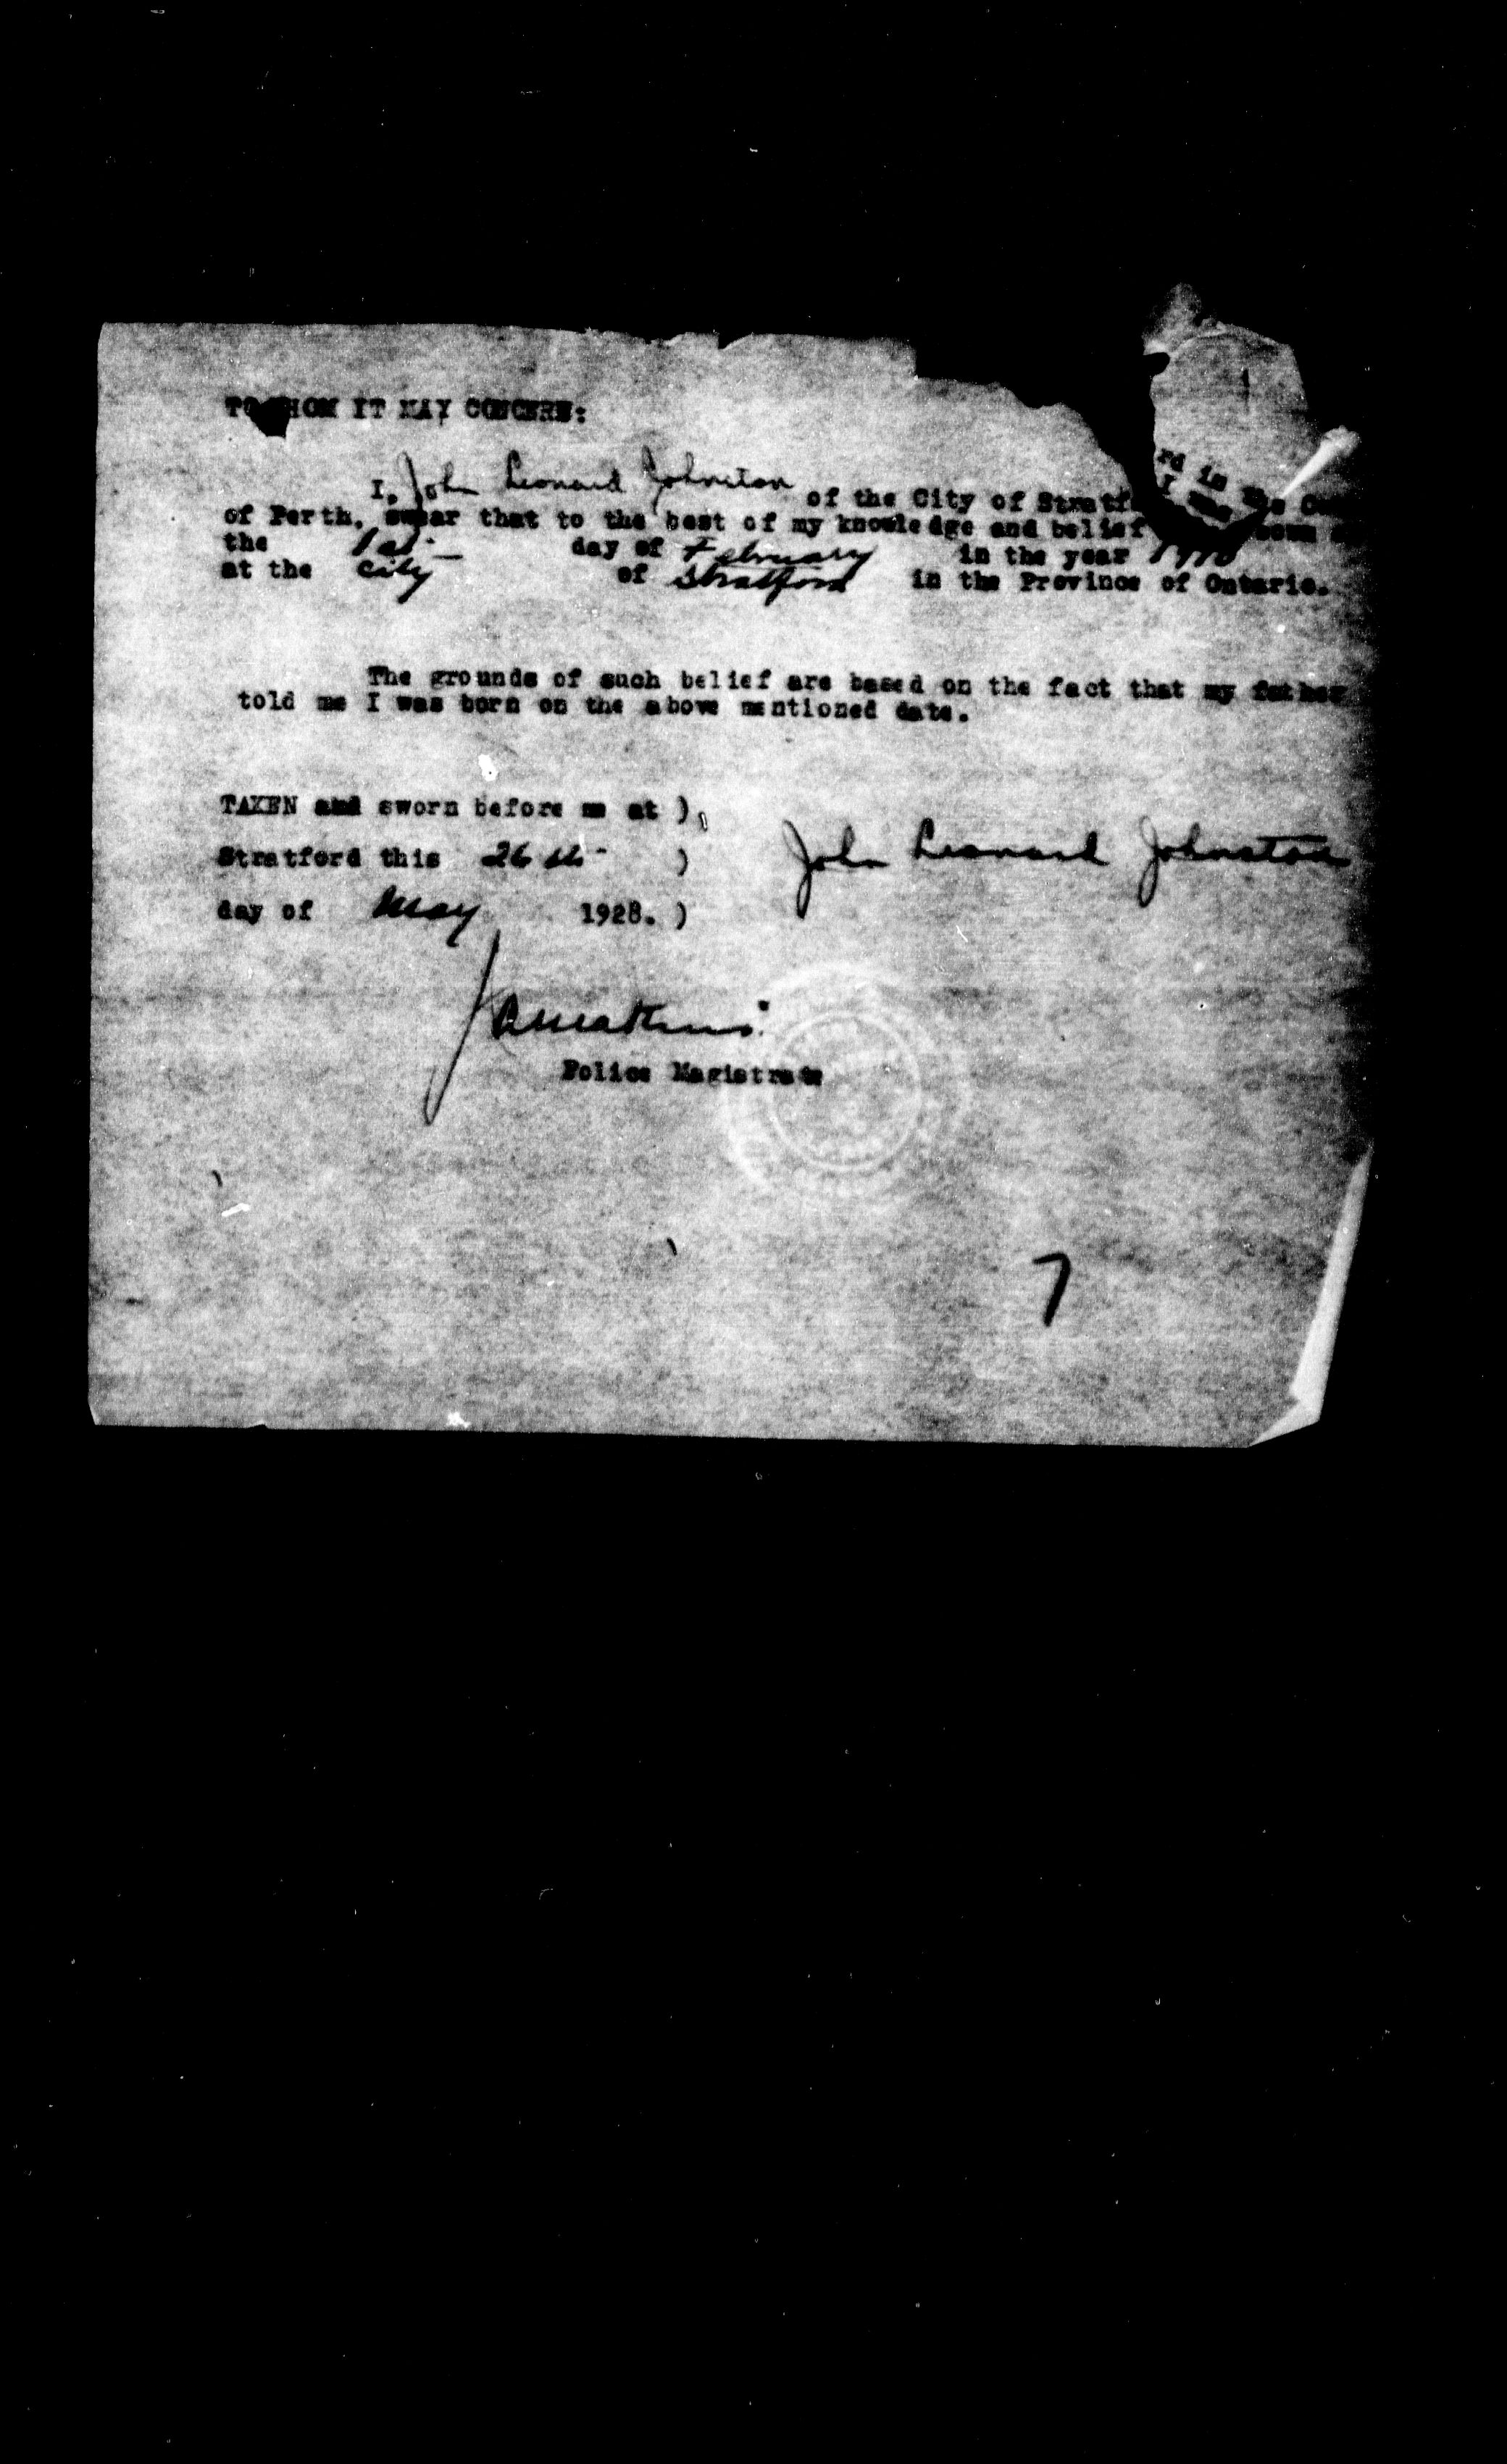 TO WHOM IT MAY CONCERN:
I, John Leonard Johnston of the City of Stratford in the
of Perth, swear that to the best of my knowledge and belief I was born
the 1st day of February in the year
at the City of Stratford in the Province of Ontario.
The grounds of such belief are based on the fact that my father
told me I was born on the above mentioned date.
TAKEN and sworn before me at )
Stratford this 26th )
day of May 1928. )
John Leonard Johnston
Police Magistrate
7